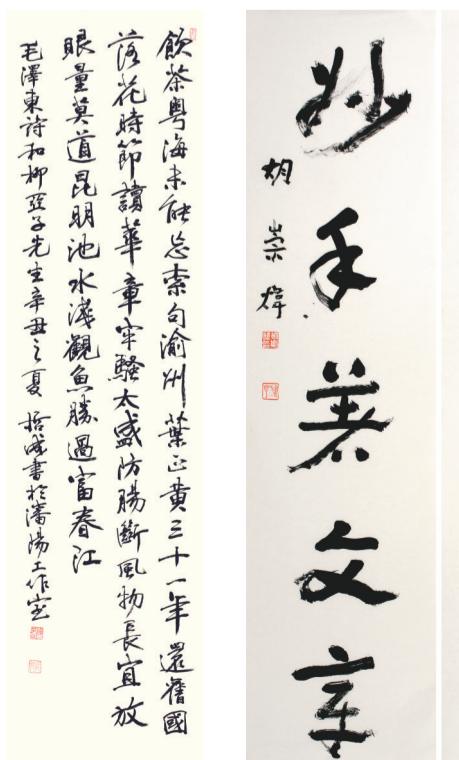 飲茶粵海未能忘索句渝州葉正黃三十一年還舊國
落花時節讀華章牢騷太盛防腸斷風物長宜放
眼量莫道昆明池水淺觀魚勝過富春江
毛澤東詩和柳亞子先生辛丑之夏 哲成書於瀋陽工作室
妙手著文章
胡崇煒